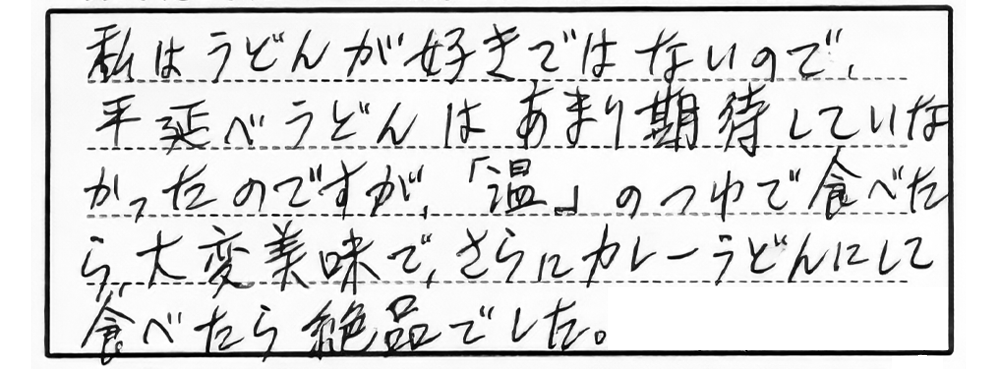 私はうどんが好きではないので、
平延べうどんはあまり期待していな
かったのですが、「温」のつゆで食べた
ら、大変美味で、さらにカレーうどんにして
食べたら絶品でした。